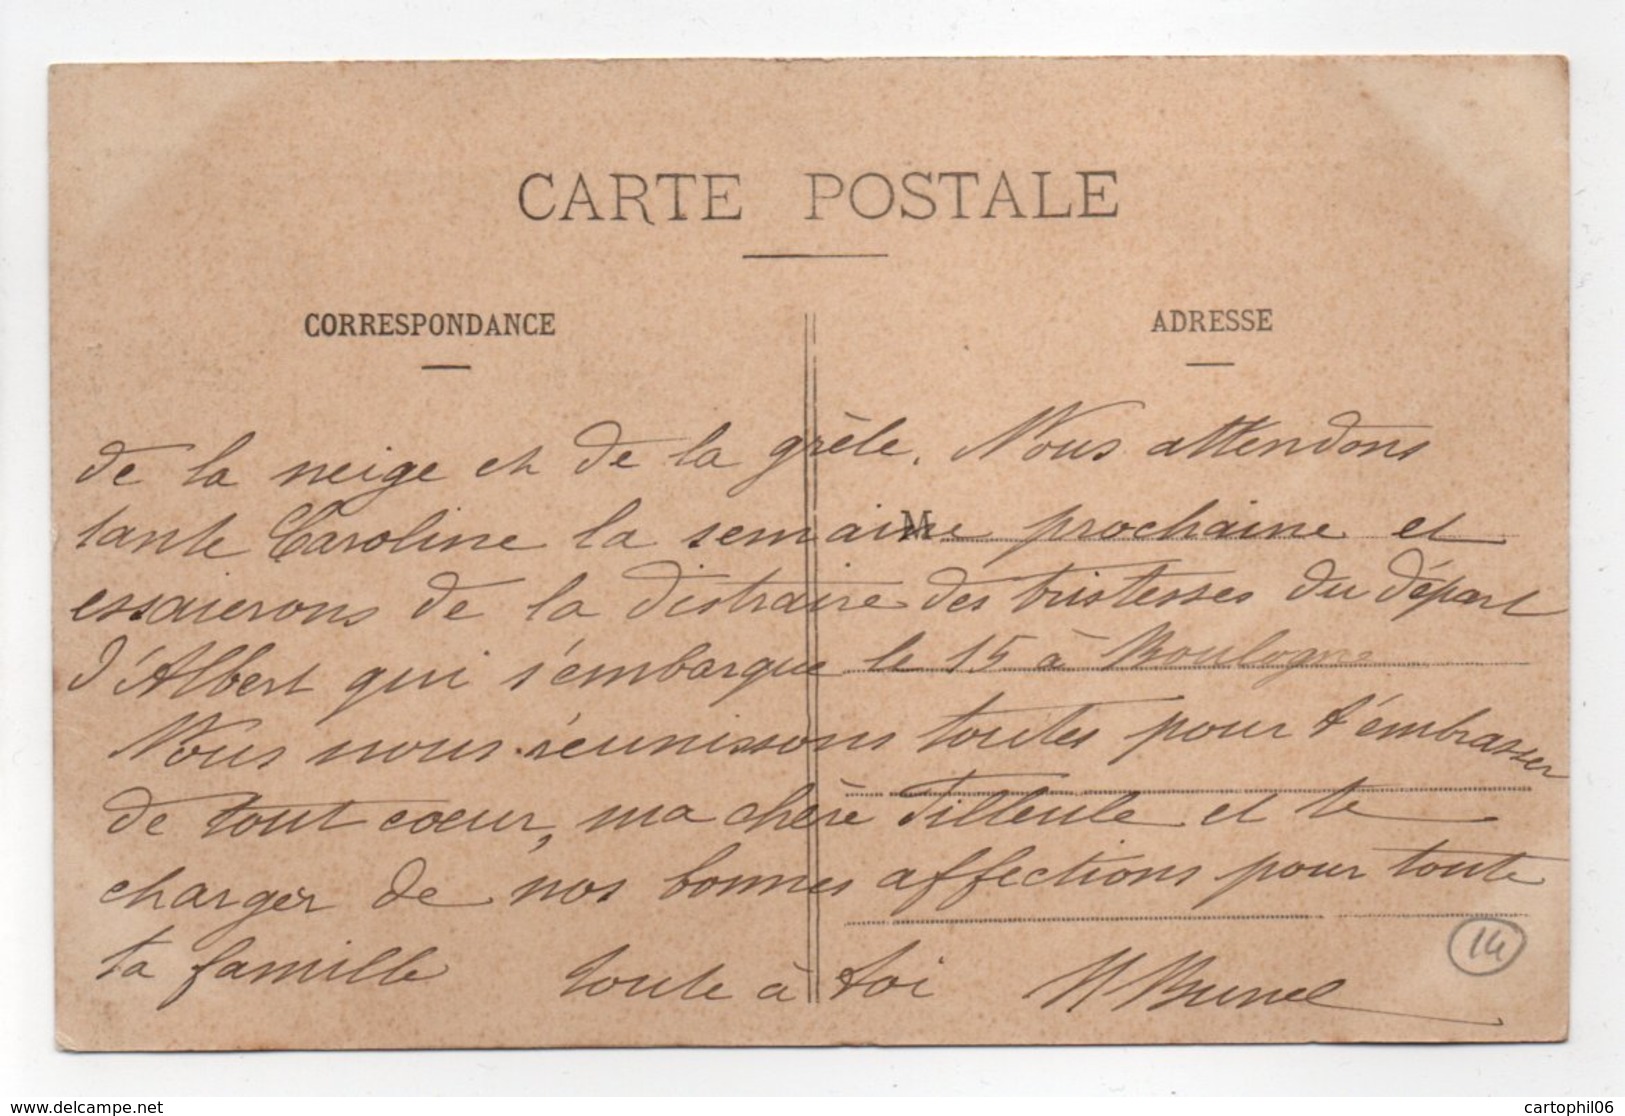 CARTE POSTALE
CORRESPONDANCE
ADRESSE
de la neige et de la grèle. Nous attendons
tante Caroline la semaine prochaine et
M
essaierons de la distraire des tristesses du départ
d'Albert qui s'embarque le 15 à Boulogne
Nous nous réunissons toutes pour t'embrasser
de tout coeur, ma chère Tilleule et te
charger de nos bonnes affections pour toute
ta famille toute à toi Brunel
14
www.delcampe.net
cartophil06